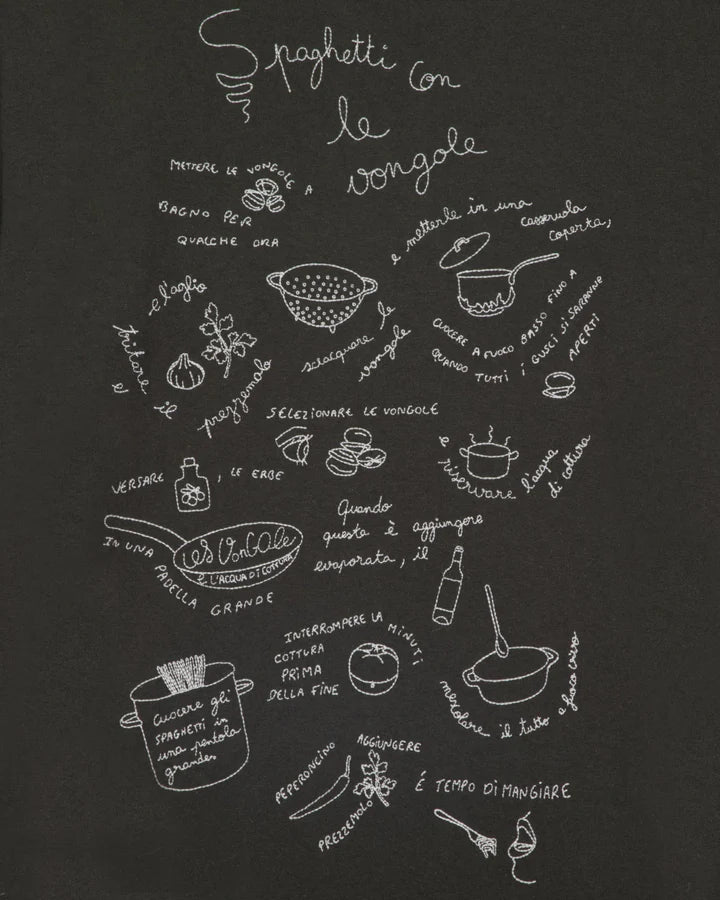 Spaghetti con
le
vongole
METTERE LE VONGOLE A
BAGNO PER
QUALCHE ORA
sciacquare le
vongole
e metterle in una
casseruola
coperta,
CUOCERE A FUOCO BASSO FINO A
QUANDO TUTTI I GUSCI SI SARANNO
APERTI
e tritare
e l'aglio
il
prezzemolo
SELEZIONARE LE VONGOLE
e riservare l'acqua
di cottura
VERSARE , LE ERBE
LES VONGOLE
E L'ACQUA DI COTTURA
IN UNA PADELLA GRANDE
Quando
questa è aggiungere
evaporata, il
Cuocere gli
SPAGHETTI in
una pentola
grandes
INTERROMPERE LA
COTTURA MINUTI
PRIMA
DELLA FINE
mescolare il tutto a fuoco
AGGIUNGERE
PEPERONCINO
PREZZEMOLO
É TEMPO DI MANGIARE